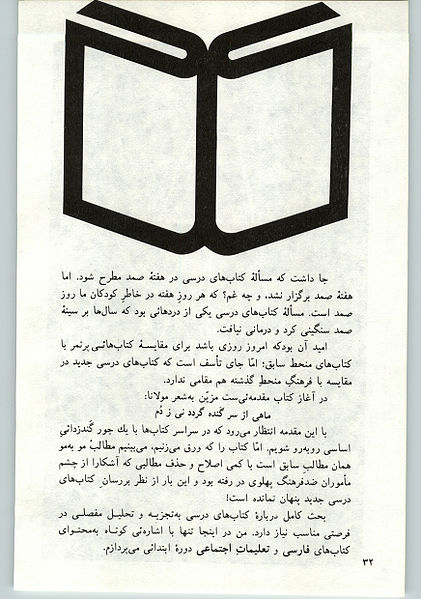 جا داشت که مسألهٔ کتاب‌های درسی در هفتهٔ صمد مطرح شود. اما
هفتهٔ صمد برگزار نشد، و چه غم؟ که هر روزِ هفته در خاطرِ کودکان ما روز
صمد است. مسألهٔ کتاب‌های درسی یکی از دردهائی بود که سال‌ها بر سینهٔ
صمد سنگینی کرد و درمانی نیافت.
امید آن بودکه امروز روزی باشد برای مقایسهٔ کتاب‌هائی پرثمر با
کتاب‌های منحط سابق؛ امّا جای تأسف است که کتاب‌های درسی جدید در
مقایسه با فرهنگِ منحطِ گذشته هم مقامی ندارد.
در آغاز کتاب مقدمه‌ئی‌ست مزیّن به‌شعر مولانا:
ماهی از سر گنده گردد نی ز دُم
با این مقدمه انتظار می‌رود که در سراسر کتاب‌ها با یك جور گندزدائیِ
اساسی روبه‌رو شویم. امّا کتاب را که ورق می‌زنیم، می‌بینیم مطالبْ مو به‌مو
همان مطالبِ سابق است با کمی اصلاح و حذف مطالبی که آشکارا از چشم
مأموران ضدفرهنگ پهلوی در رفته بود و این بار از نظر بررسانِ کتاب‌های
درسی جدید پنهان نمانده است!
بحث کامل دربارهٔ کتاب‌های درسی به‌تجزیـه و تحلیـل مفصلـی در
فرصتی مناسب نیاز دارد. من در اینجا تنها با اشاره‌ئی کوتـاه به‌محتـوای
کتاب‌های فارسی و تعلیماتِ اجتماعی دورهٔ ابتدائی می‌پردازم.
۳۲